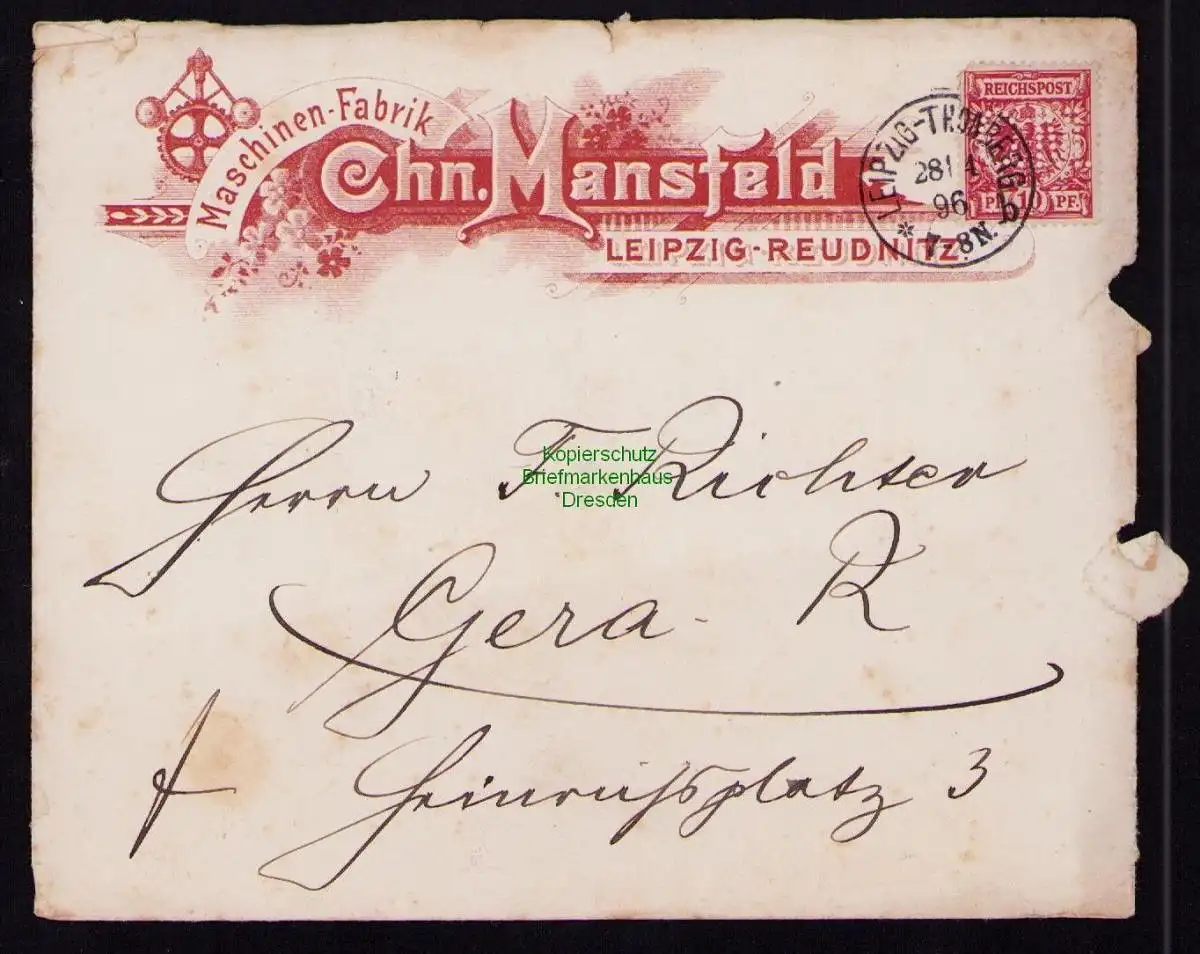 Maschinen-Fabrik
Chn. Mansfeld
LEIPZIG-REUDNITZ.
REICHSPOST
10 PF.
LEIPZIG-THONBERG
28 4
96
* 7-8N. b
Herrn F. Richter
Kopierschutz
Briefmarkenhaus
Dresden
Gera. R
Heinrichsplatz 3